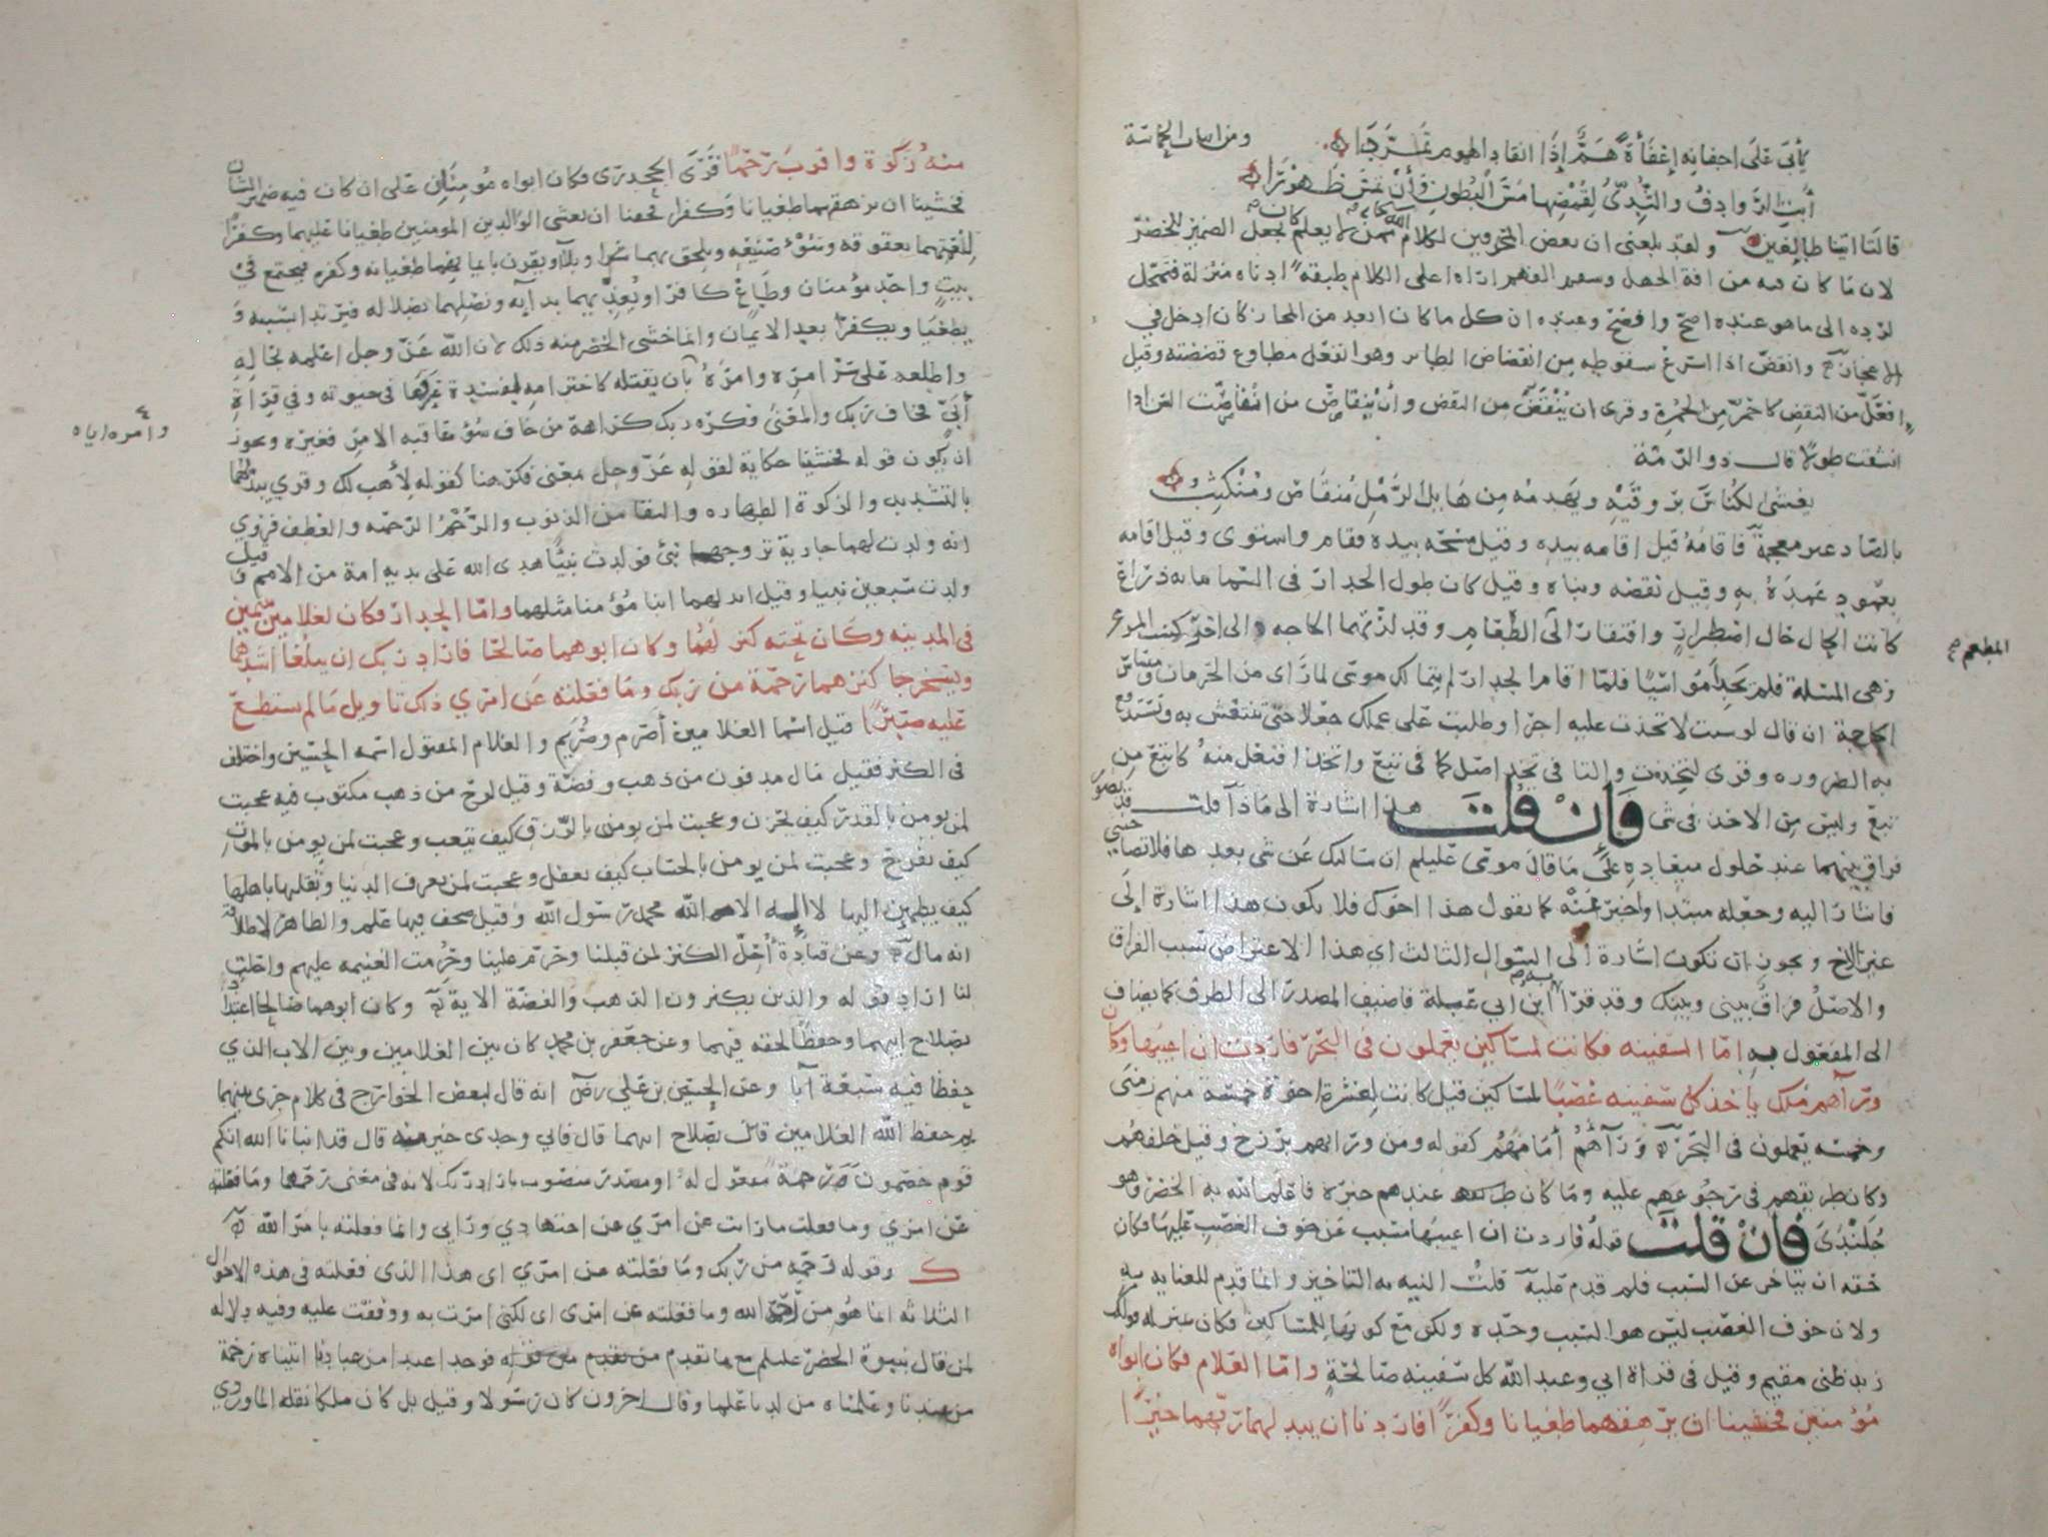 يأبى على اجفانه إغفاءةً همٌّ إذا انقاد الهموم تمردا ومن ابيات الحماسة
أبت الروادف والثدي لقمصها مس البطون وأن تمس ظهورا
قالتا اتينا طائعين ولقد بلغني ان بعض المحرفين لكلام الله ممن لا يعلم كان يجعل الضمير للخضر
لان ما كان فيه من افة الجهل وسقم الفهم اراه اعلى الكلام طبقة ادناه منزلة فتمحل
لرده الى ما هو عنده اصح وافصح وعنده ان كل ما كان ابعد من المجاز كان ادخل في
الاعجاز وانقض اذا اسرع سقوطه من انقضاض الطاير وهو انفعل مطاوع قضضته وقيل
افعل من النقض كاحمر من الحمرة وقرى ان ينقض من النقض وأن ينقاص من انقاصت السن اذا
انشقت طولا قال ذو الرمة
يغشى الكناس بروقيه ويهدمه من هايل الرمل منقاص ومنكثب
بالصاد غير معجمة فاقامه قيل اقامه بيده وقيل مسحه بيده فقام واستوى وقيل اقامه
بعمود عمده به وقيل نقضه وبناه وقيل كان طول الجدار في السما مايه ذراع
كانت الحال حال اضطرار وافتقار الى الطعام وقد لزتهما الحاجه الى اخر كسب المرء
المطعم
وهي المسلة فلم يجدا مواسيا فلما اقام الجدار لم يتمالك موسى لما راى من الحرمان ومساس
الحاجة ان قال لو شيت لاتخذت عليه اجرا وطلبت على عملك جعلا حتى ننتعش به ونستدفع
به الضروره وقرى لتخذت والتا في تخذ اصل كما في تبع واتخذ افتعل منه كاتبع من
تبع وليس من الاخذ في شي فإن قلت هذا اشارة الى ماذا قلت قد تصور
فراق بينهما عند حلول ميعاده على ما قال موسى عليلم ان سالتك عن شي بعدها فلا تصاحبني
فاشار اليه وجعله مبتدا واخبر عنه كما تقول هذا اخوك فلا يكون هذا اشارة إلى
غير الاخ ويجوز ان تكون اشارة الى السوال الثالث اي هذا الاعتراض سبب الفراق
والاصل فراق بيني وبينك وقد قرا به ابن ابي عبلة فاضيف المصدر الى الظرف كما يضاف
الى المفعول به اما السفينه فكانت لمساكين يعملون في البحر فاردت ان اعيبها وكان
وراهم ملك ياخذ كل سفينه غصبا لمساكين قيل كانت لعشرة اخوة خمسة منهم زمنى
وخمسه يعملون في البحر وراهم أمامهم كقوله ومن ورايهم برزخ وقيل خلفهم
وكان طريقهم في رجوعهم عليه وما كان عندهم خبره فاعلم الله به الخضر وهو
جلندى فإن قلت قوله فاردت ان اعيبها مسبب عن خوف الغصب عليها فكان
حقه ان يتاخر عن السبب فلم قدم عليه قلت النيه به التاخير وانما قدم للعنايه به
ولان خوف الغصب ليس هو السبب وحده ولكن مع كونها للمساكين فكان بمنزله قولك
زيد ظني مقيم وقيل في قراة ابي وعبد الله كل سفينه صالحة واما الغلام فكان ابواه
مؤمنين فخشينا ان يرهقهما طغيانا وكفرا فاردنا ان يبدلهما ربهما خيرا
منه زكوة واقرب رحما قرى الجحدري وكان ابواه مؤمنان على ان كان فيه ضمير الشان
فخشينا ان يرهقهما طغيانا وكفرا فخفنا ان يغشى الوالدين المومنين طغيانا عليهما وكفرا
لنعمتهما بعقوقه وسوء صنيعه ويلحق بهما شرا وبلآ ويقرن بايمانهما طغيانه وكفره فيجتمع في
بيت واحد مؤمنان وطاغ كافر او يعديهما بدايه ويضلهما بضلاله فيرتدا بسببه و
يطغيا ويكفرا بعد الايمان وانما خشى الخضر منه ذلك لان الله عز وجل اعلمه بحاله
واطلعه على سر امره وامره بان يقتله كاخترامه لمفسدة عرفها في حيوته وفي قراة
وامره اياه
أبي فخاف ربك والمعنى فكره ربك كراهة من خاف سوء عاقبه الامر فغيره ويجوز
ان يكون قوله فخشينا حكاية لقول الله عز وجل معنى فكرهنا كقوله لأهب لك وقرى يبدلهما
بالتشديد والزكوة الطهاره والنقا من الذنوب والرحم الرحمه والعطف فروي
انه ولدت لهما جارية تزوجها نبي فولدت نبيا هدى الله على يديه امة من الامم وقيل
ولدت سبعين نبيا وقيل ابدلهما ابنا مؤمنا مثلهما واما الجدار فكان لغلامين يتيمين
في المدينه وكان تحته كنز لهما وكان ابوهما صالحا فاراد ربك ان يبلغا اشدهما
ويستخرجا كنزهما رحمة من ربك وما فعلته عن امري ذلك تاويل ما لم تستطع
عليه صبرا قيل اسما الغلامين أصرم وصريم والغلام المقتول اسمه الحسين واختلف
في الكنز فقيل مال مدفون من ذهب وفضة وقيل لوح من ذهب مكتوب فيه عجبت
لمن يومن بالقدر كيف يحزن وعجبت لمن يومن بالرزق كيف يتعب وعجبت لمن يومن بالموت
كيف يفرح وعجبت لمن يومن بالحساب كيف يغفل وعجبت لمن يعرف الدنيا وتقلبها باهلها
كيف يطمين اليها لا اله الا الله محمد رسول الله وقيل صحف فيها علم والظاهر لاطلاقه
انه مال وعن قتادة أحل الكنز لمن قبلنا وحرم علينا وحرمت الغنيمه عليهم واحلت
لنا اراد قوله والذين يكنزون الذهب والفضة الاية وكان ابوهما صالحا اعتدادا
بصلاح ابيهما وحفظا لحقه فيهما وعن جعفر بن محمد كان بين الغلامين وبين الاب الذي
حفظا فيه سبعة آبا وعن الحسين بن علي رض انه قال لبعض الخوارج في كلام جرى بينهما
بم حفظ الله الغلامين قال بصلاح ابيهما قال فابي وجدي خير منه قال قد انبانا الله انكم
قوم خصمون رحمة مفعول له او مصدر منصوب باراد ربك لانه في معنى رحمهما وما فعلته
عن امري وما فعلت ما رايت عن امري عن اجتهادي ورايي وانما فعلته بامر الله
ك وقوله رحمه من ربك وما فعلته عن امري اى هذا الذى فعلته في هذه الاحوال
الثلاثه انما هو من رحمة الله وما فعلته عن امرى اى لكني امرت به ووقفت عليه وفيه دلاله
لمن قال بنبوة الخضر عليلم مع ما تقدم من قوله فوجدا عبدا من عبادنا اتيناه رحمة
من عندنا وعلمناه من لدنا علما وقال اخرون كان رسولا وقيل بل كان ملكا نقله الماوردي